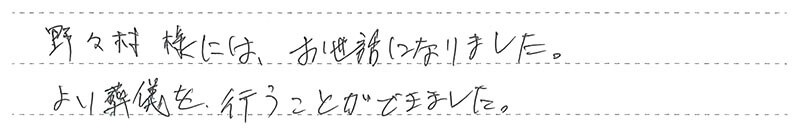 野々村 様には、お世話になりました。
より葬儀を、行うことができました。